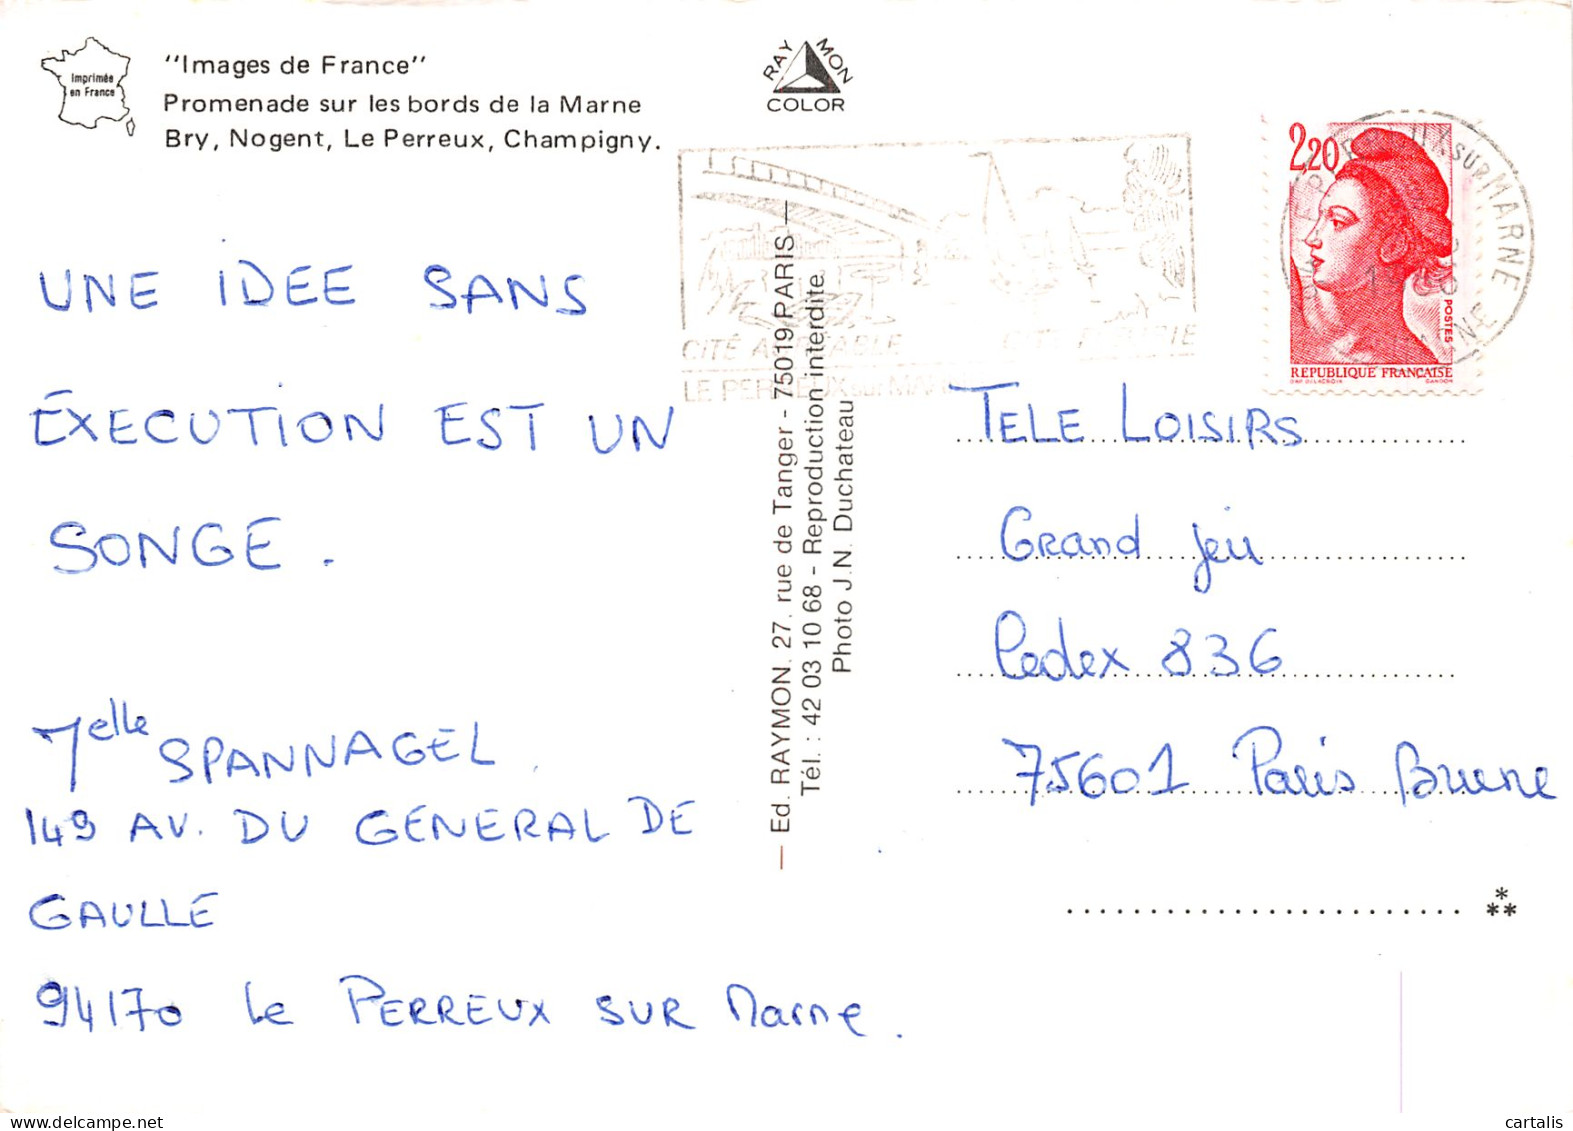 Imprimée
en France
"Images de France"
Promenade sur les bords de la Marne
Bry, Nogent, Le Perreux, Champigny.
RAYMON
COLOR
UNE IDEE SANS
ÉXECUTION EST UN
SONGE.
7elle SPANNAGEL
149 AV. DU GÉNÉRAL DE
GAULLE
94170 Le PERREUX SUR Marne.
Ed. RAYMON. 27, rue de Tanger - 75019 PARIS
Tél. : 42 03 10 68 - Reproduction interdite.
Photo J.N. Duchateau
CITÉ AGRÉABLE
LE PERREUX sur MAR
2,20
POSTES
REPUBLIQUE FRANÇAISE
DAP. DELACROIX
GANDON
SUR MARNE
TELE LOISIRS
Grand Jeu
Cedex 836
75601 Paris Brune
***
cartalis